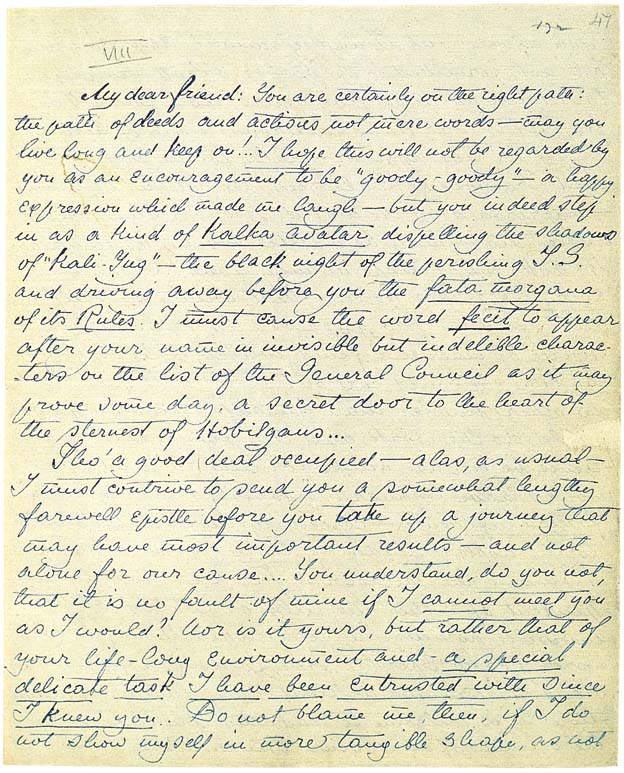 47
VIII
My dear friend: You are certainly on the right path:
the path of deeds and actions not mere words — may you
live long and keep on!.. I hope this will not be regarded by
you as an encouragement to be "goody-goody" — a happy
expression which made me laugh — but you indeed step
in as a kind of Kalka avatar dispelling the shadows
of "Kali-Yug" — the black night of the perishing T.S.
and driving away before you the fata morgana
of its Rules. I must cause the word fecit to appear
after your name in invisible but indelible charac-
-ters on the list of the General Council as it may
prove some day, a secret door to the heart of
the sternest of Hobilgans...
Tho' a good deal occupied — alas, as usual —
I must contrive to send you a somewhat lengthy
farewell epistle before you take up a journey that
may have most important results — and not
alone for our cause.... You understand, do you not,
that it is no fault of mine if I cannot meet you
as I would? Nor is it yours, but rather that of
your life-long environment and — a special
delicate task I have been entrusted with since
I knew you. Do not blame me, then, if I do
not show myself in more tangible shape, as not